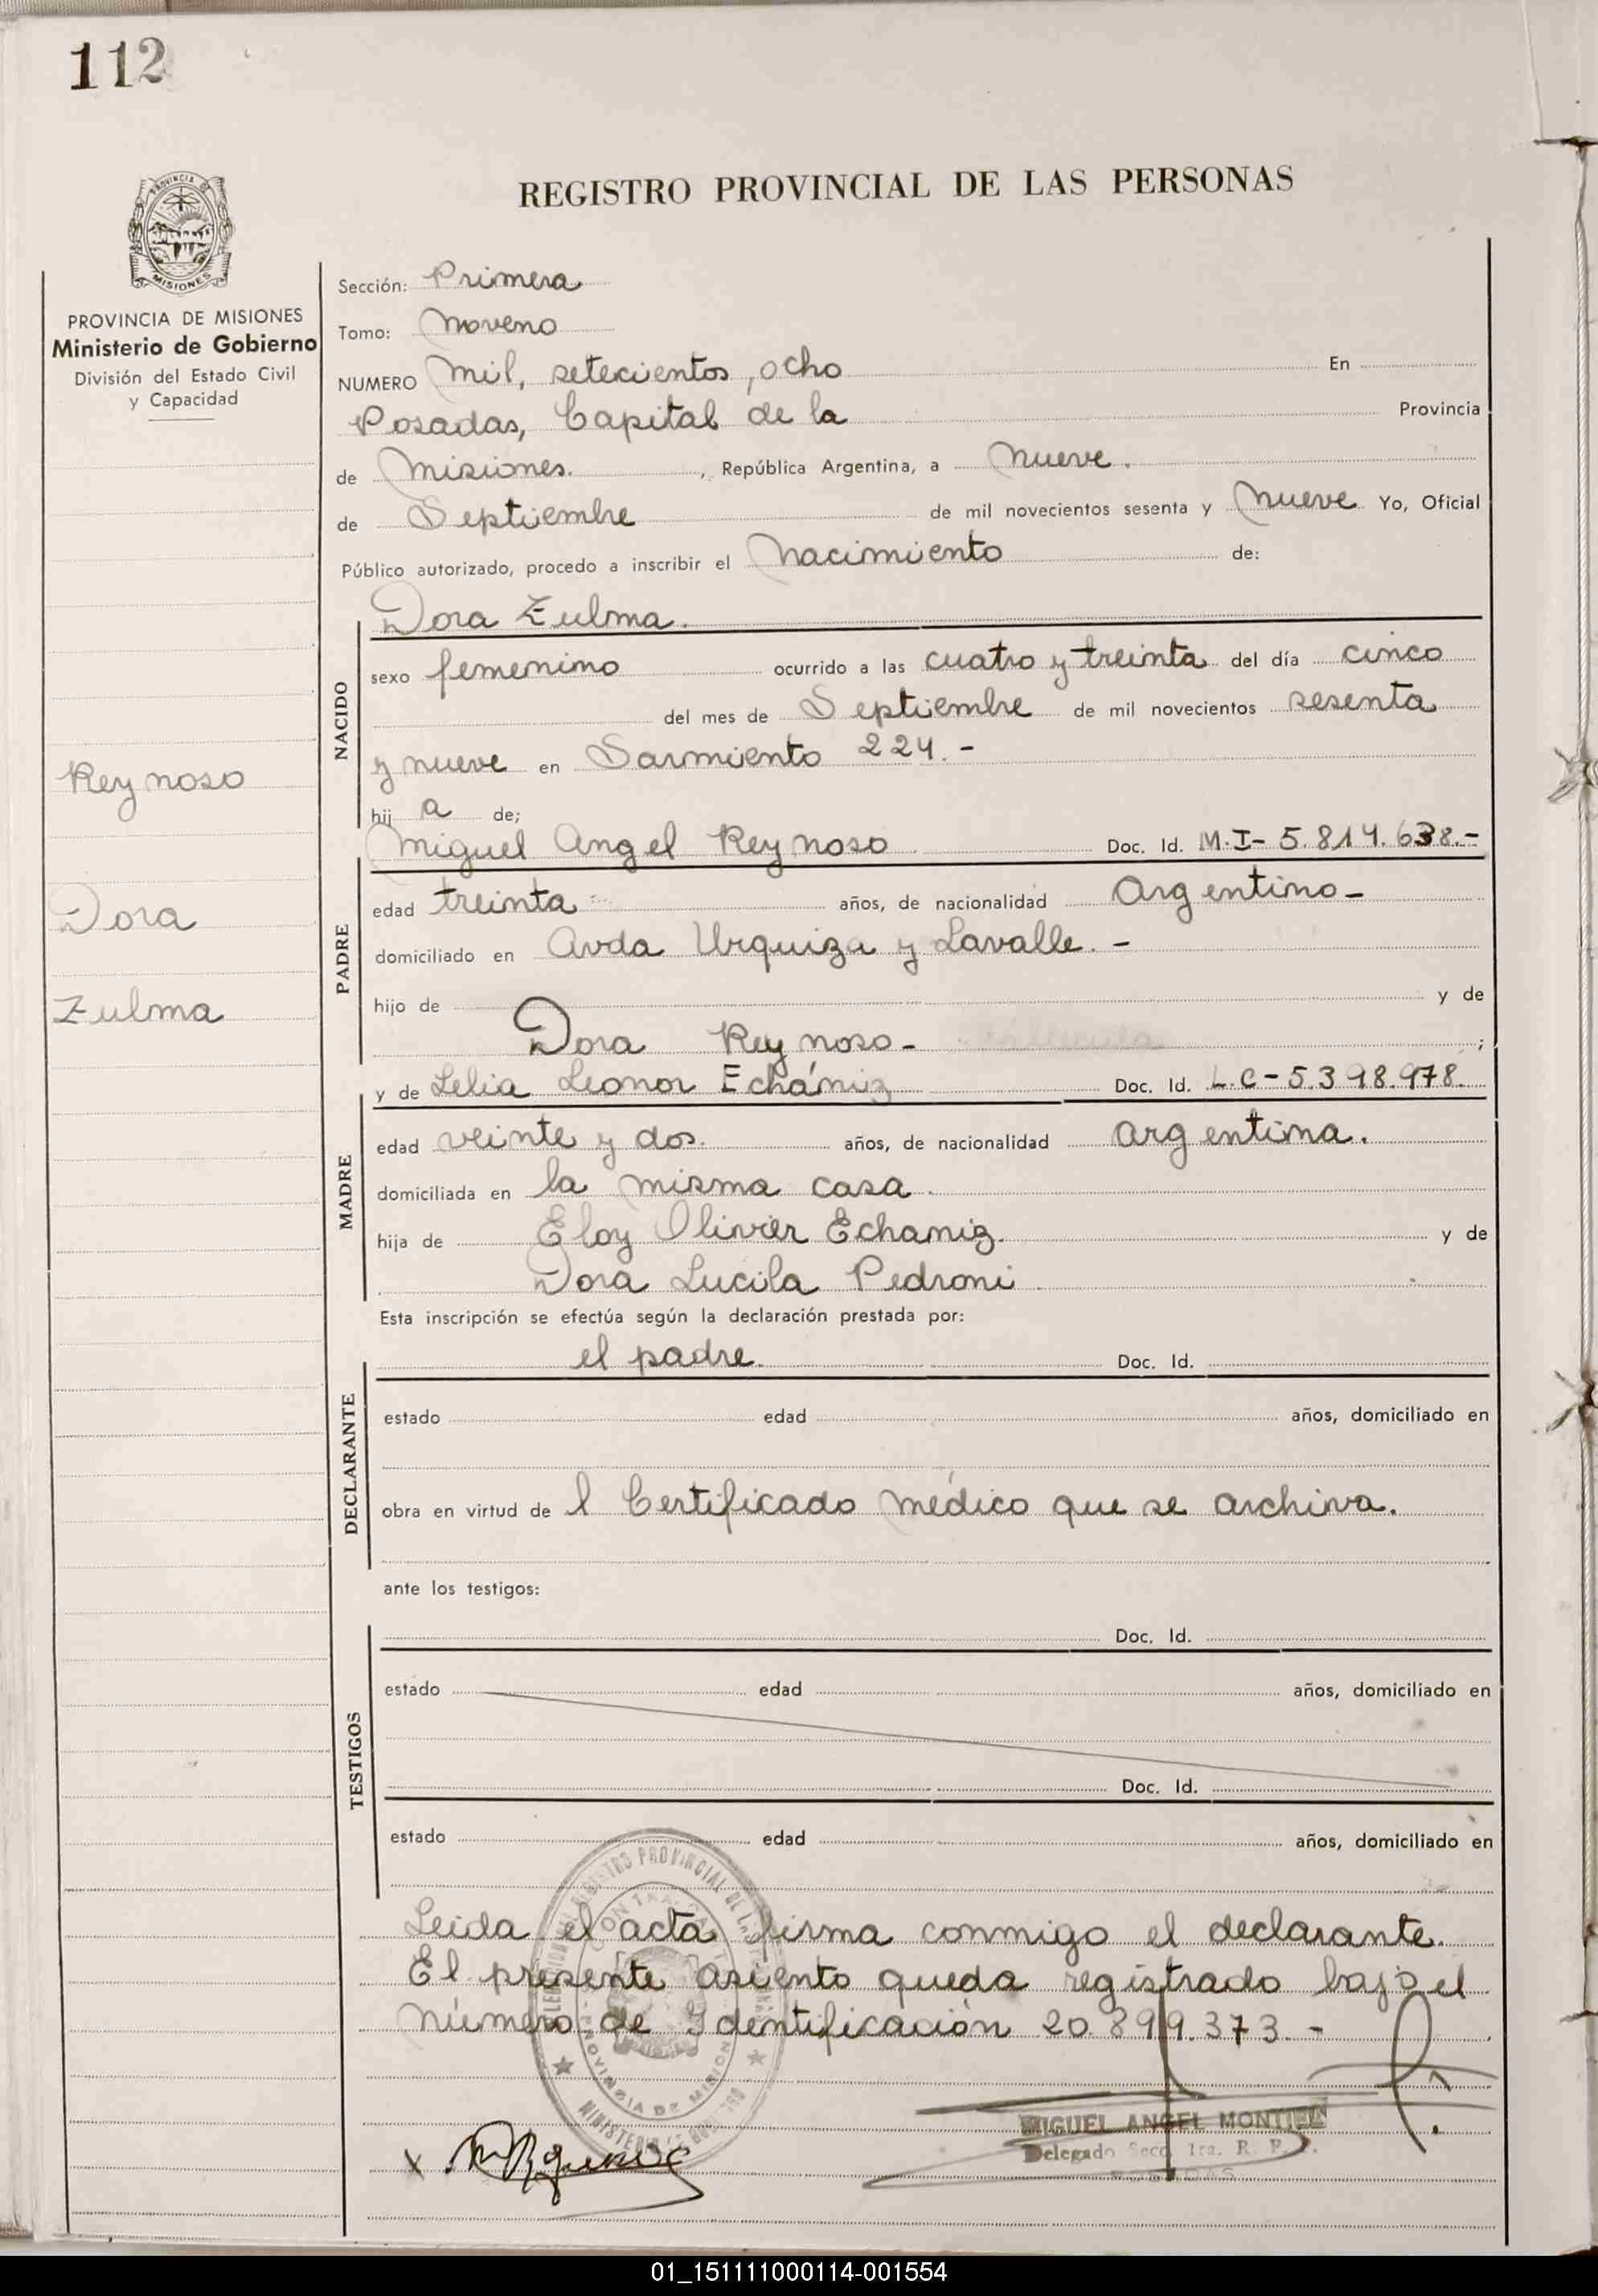 112
REGISTRO PROVINCIAL DE LAS PERSONAS
PROVINCIA DE MISIONES
PROVINCIA DE MISIONES
Ministerio de Gobierno
División del Estado Civil
y Capacidad
Reynoso
Dora
Zulma
Sección: Primera
Tomo: Noveno
NUMERO Mil, setecientos, ocho En
Posadas, Capital de la Provincia
de Misiones. , República Argentina, a Nueve.
de Septiembre de mil novecientos sesenta y Nueve Yo, Oficial
Público autorizado, procedo a inscribir el Nacimiento de:
NACIDO
Dora Zulma.
sexo femenino ocurrido a las cuatro y treinta del día cinco
del mes de Septiembre de mil novecientos sesenta
y nueve en Sarmiento 224.-
hij a de;
Miguel Angel Reynoso Doc. Id. M.I- 5.814.638.-
PADRE
edad treinta años, de nacionalidad Argentino-
domiciliado en Avda Urquiza y Lavalle. -
hijo de y de
Dora Reynoso- ;
y de Lelia Leonor Echániz Doc. Id. L.C-5.398.978.
MADRE
edad veinte y dos. años, de nacionalidad Argentina.
domiciliada en la misma casa.
hija de Eloy Olivier Echaniz. y de
Dora Lucila Pedroni.
Esta inscripción se efectúa según la declaración prestada por:
el padre. Doc. Id.
DECLARANTE
estado edad años, domiciliado en
obra en virtud de l Certificado médico que se archiva.
ante los testigos:
Doc. Id.
TESTIGOS
estado edad años, domiciliado en
Doc. Id.
estado edad años, domiciliado en
Leida el acta firma conmigo el declarante.
El presente asiento queda registrado bajo el
número de Identificación 20.899.373.-
MIGUEL ANGEL MONTIEL
Delegado Secc. 1ra. R. P.
x
01_151111000114-001554